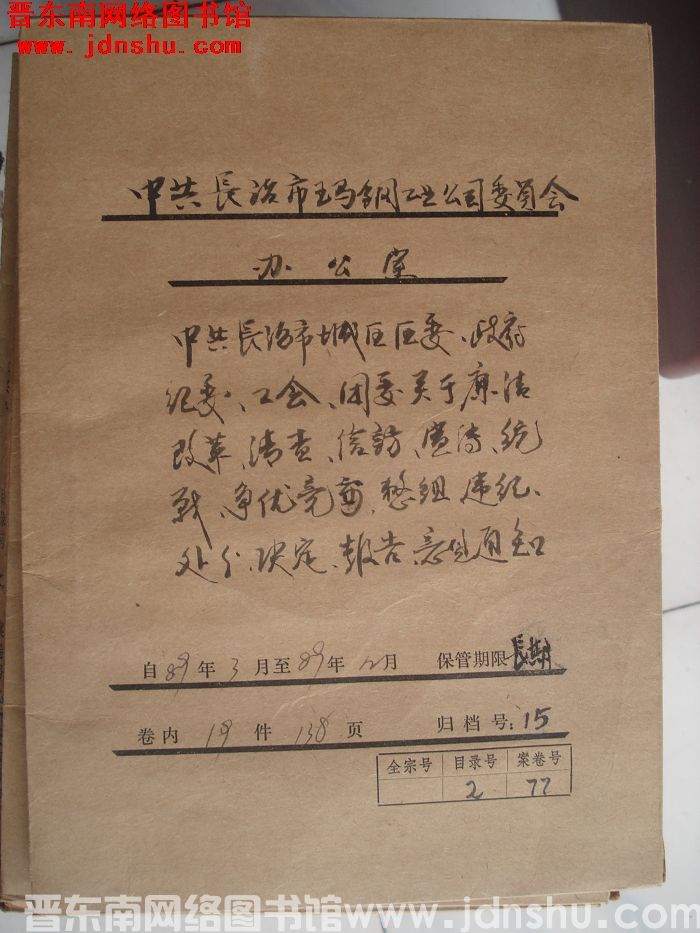 晋东南网络图书馆
www.jdnshu.com
中共長治市玛钢工业公司委員会
办公室
中共長治市城区区委、政府
纪委、工会、团委关于廉洁
改革、清查、信訪、宣传、统
战、争优竞赛、整组、违纪、
处分、决定、报告、意见通知
自89年3月至89年12月 保管期限 長期
卷内 19 件 138 页 归档号:15
全宗号 目录号 案卷号
2 77
晋东南网络图书馆 www.jdnshu.com